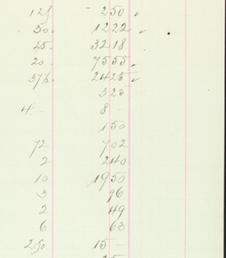 12½ 250 ✓
50 1222 ✓
45 3218
20 7555 ✓
37½ 2425 ✓
325
4 — 8 —
150
72 702
2 240
10 1950
3 96
2 49
6 63
250 15 —